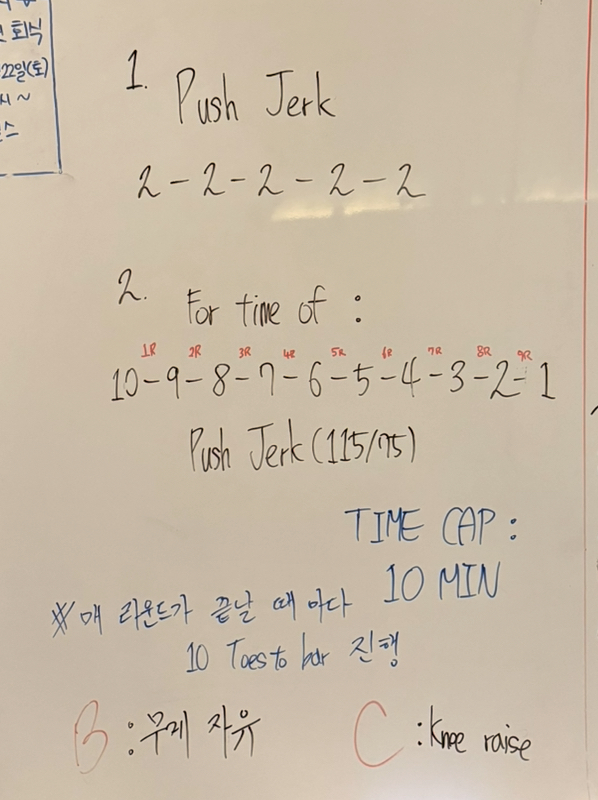 회식
22일(토)
시 ~
스
1. Push Jerk
2 - 2 - 2 - 2 - 2
2. For time of :
1R 2R 3R 4R 5R 6R 7R 8R 9R
10 - 9 - 8 - 7 - 6 - 5 - 4 - 3 - 2 - 1
Push Jerk (115/75)
TIME CAP :
10 MIN
※ 매 라운드가 끝날 때 마다
10 Toes to bar 진행
B : 무게 자유
C : Knee raise